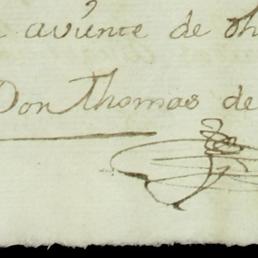 avünte de
Don Thomas de